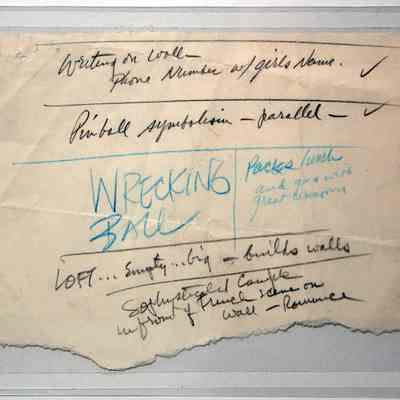 Writing on wall—
Phone Number w/ girls Name. ✓
Pinball symbolism — parallel — ✓
WRECKING
BALL
Packs lunch
and goes with
great
LOFT... Empty... big — builds walls
Sophisticated Couple
in front of French scene on
wall — Romance